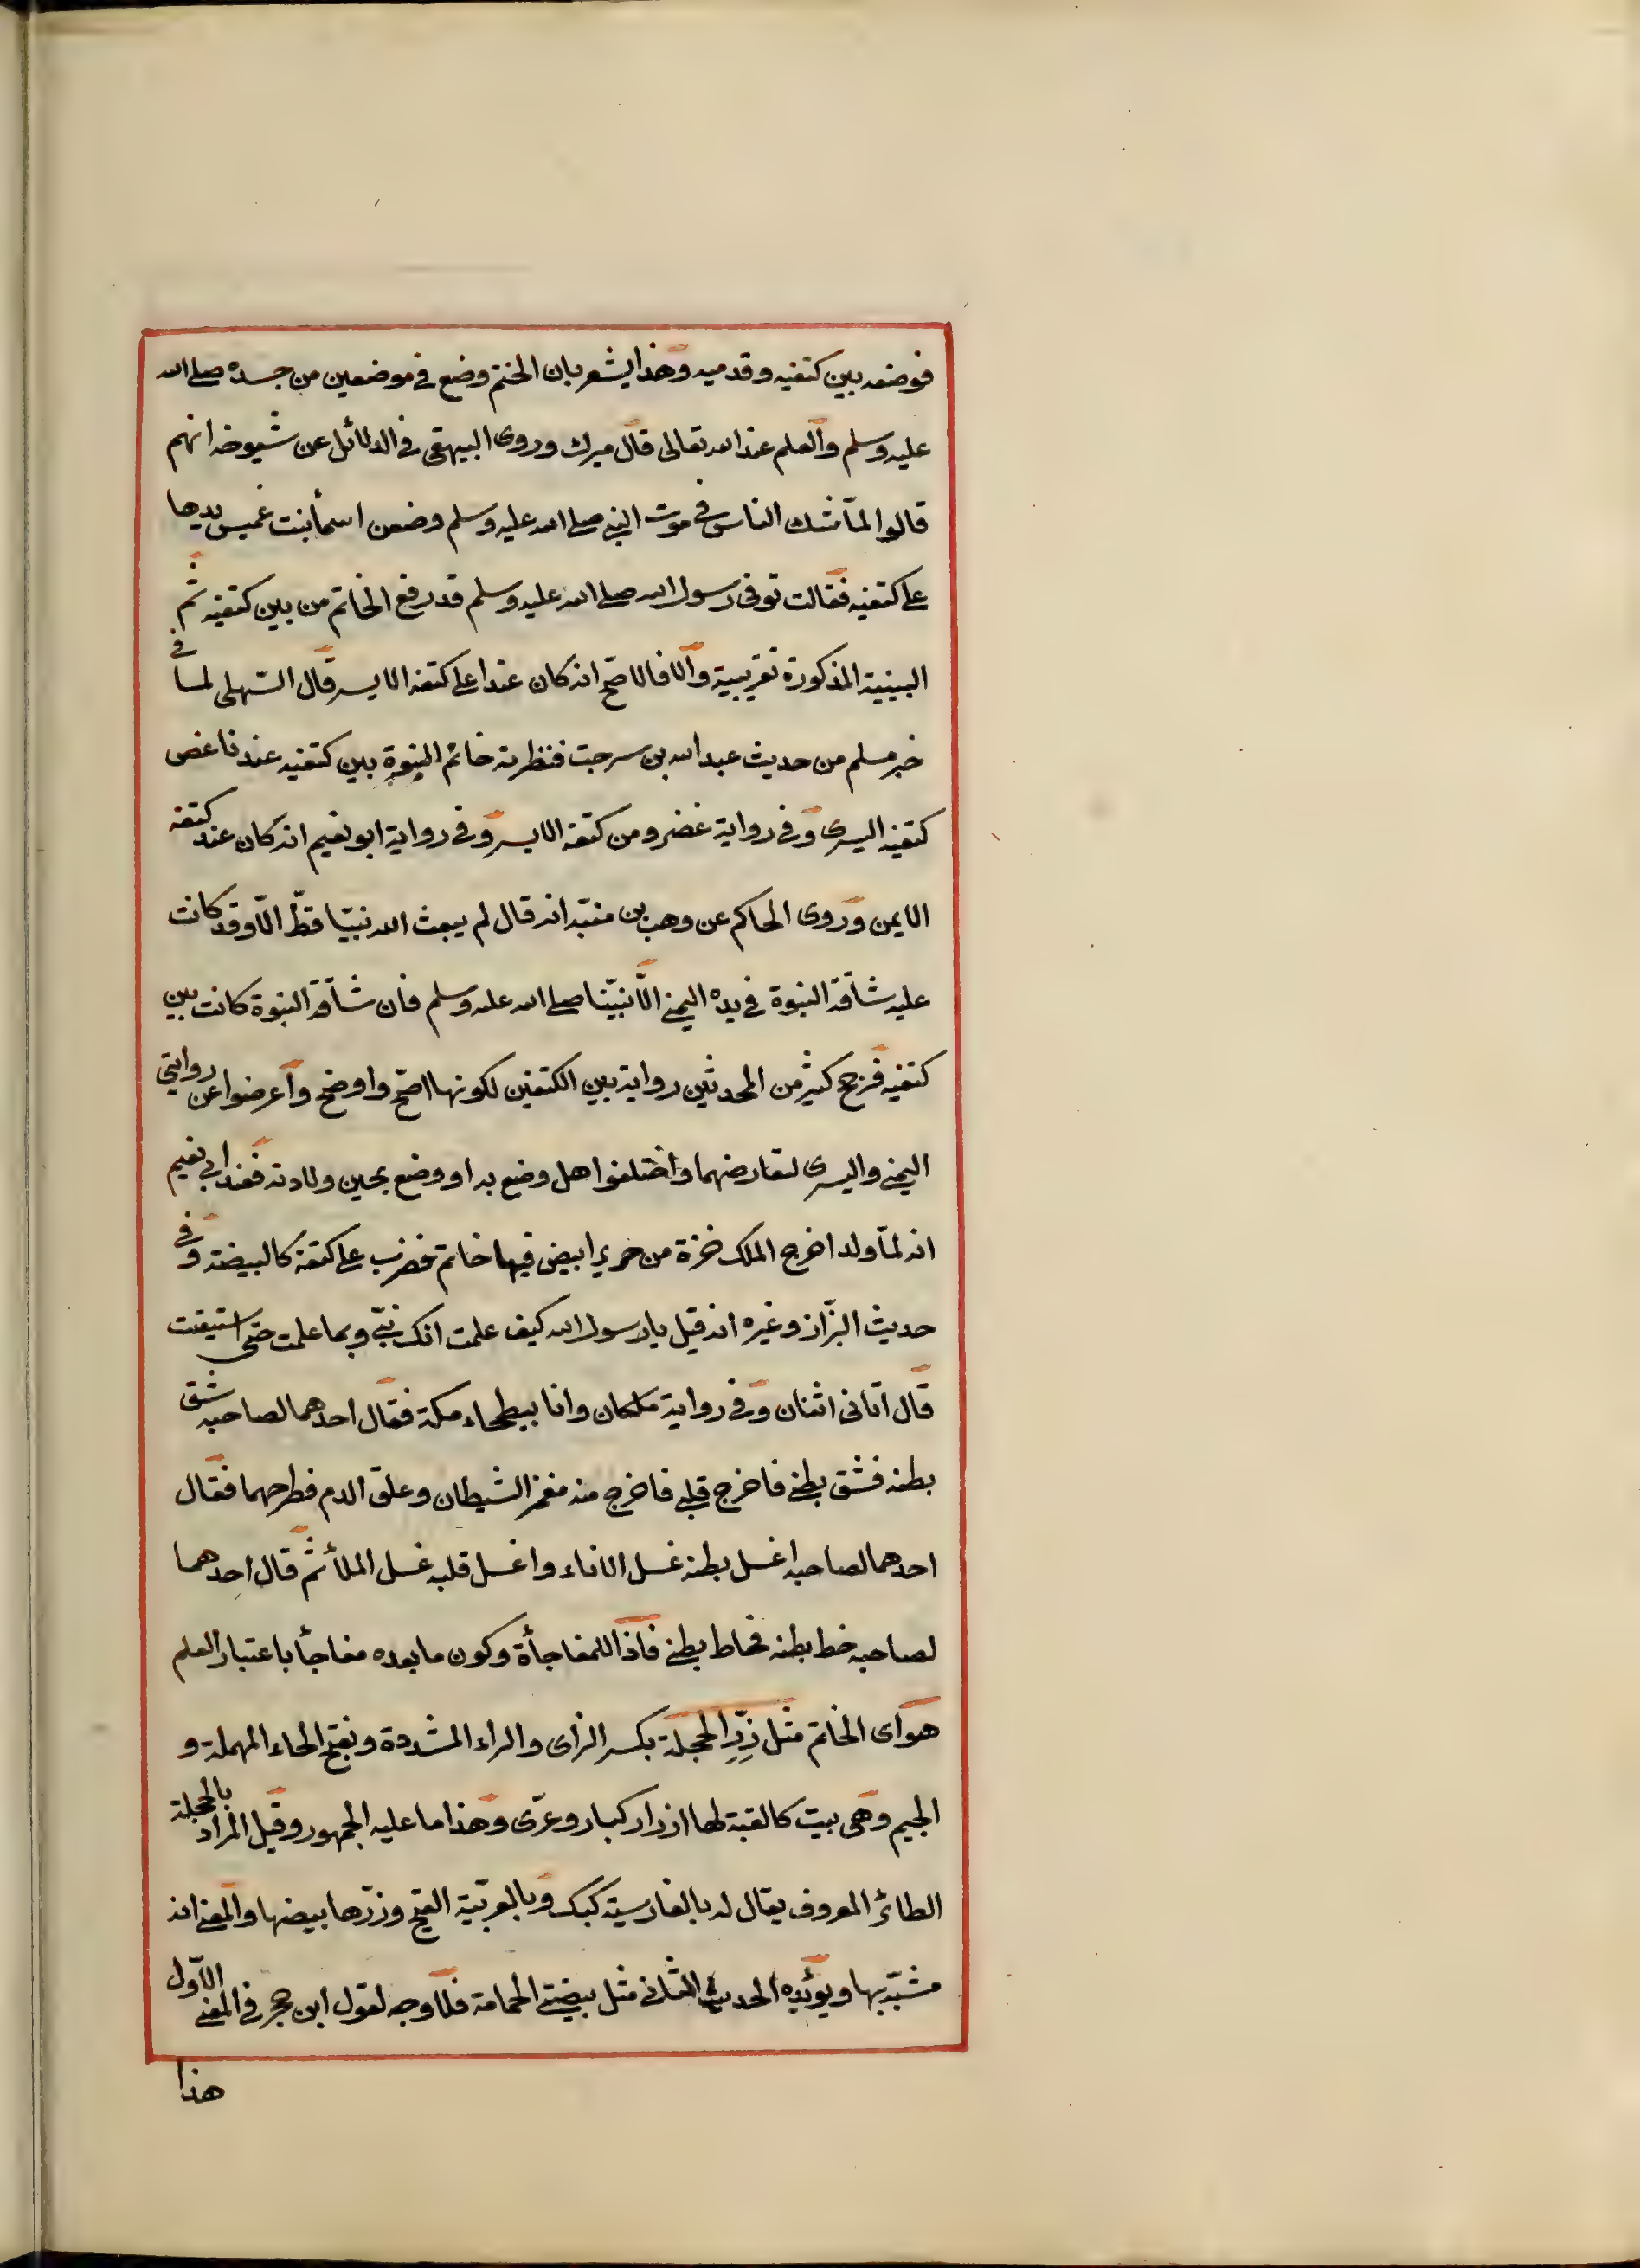 فوضعه بين كتفيه وقدميه وهذا يشعر بان الختم وضع في موضعين من جسده صلى الله
عليه وسلم والعلم عند الله تعالى قال ميرك وروى البيهقى في الدلائل عن شيوخه انهم
قالوا لمّا شك الناس في موت النبي صلى الله عليه وسلم وضعن اسمأ بنت غميس يديها
على كتفيه فقالت توفى رسول الله صلى الله عليه وسلم قد رفع الخاتم من بين كتفيه ثم
البينية المذكورة تقريبية والّا فالاصح انه كان عند اعلى كتفه الايسر قال السّهلى لما في
خبر مسلم من حديث عبد الله بن سرجت فنظرته خاتم النبوة بين كتفيه عند ناغص
كتفيه اليسرى وفى رواية غضرومن كتفه الايسر وفى رواية ابو نعيم انه كان عند كتفه
الايمن وروى الحاكم عن وهب بن منبّه انه قال لم يبعث الله نبيّا قطّ الّا وقد كانت
عليه شاقة النبوة في يده اليمنى الّا نبيّنا صلى الله عليه وسلم فان شاقة النبوة كانت بين
كتفيه فرجح كثير من المحدثين رواية بين الكتفين لكونها اصحّ واوضح واعرضوا عن روايتى
اليمنى واليسرى لتعارضهما واختلفوا هل وضع به او وضع بحين ولادته فعند ابي نعيم
انه لمّا ولد اخرج الملك خرة من حرير ابيض فيها خاتم فضرب على كتفه كالبيضة وفى
حديث البزّاز وغيره انه قيل يا رسول الله كيف علمت انك نبيّ وبما علمت حتى استيقنت
قال اتانى اثنان وفى رواية ملكان وانا ببطحاء مكة فقال احدهما لصاحبه شق
بطنه فشق بطنى فاخرج قلبى فاخرج منه مغمز الشيطان وعلق الدم فطرحهما فقال
احدهما لصاحبه اغسل بطنه غسل الاناء واغسل قلبه غسل الملأ ثم قال احدهما
لصاحبه خط بطنه فخاط بطنى فاذا للمفاجأة وكون ما بعده مفاجأ باعتبار العلم
هو اى الخاتم مثل زِرِّ الحجلة بكسر الزاى والراء المشددة وبفتح الحاء المهملة و
الجيم وهى بيت كالقبة لها ازرار كبار وعرّى وهذا ما عليه الجمهور وقيل المراد بالحجلة
الطائر المعروف يقال له بالفارسية كبك وبالعربّية القبح وزرّها بيضها والمعنى انه
مشبّه بها ويؤيده الحديث الثانى مثل بيضتى الحمامة فلا وجه لقول ابن حجر فى المعنى الاوّل
هذا